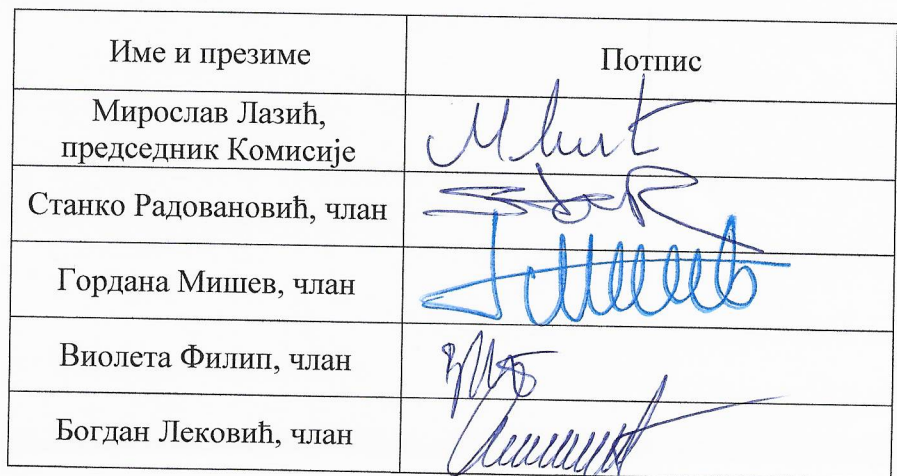 Име и презиме Потпис
Мирослав Лазић,
председник Комисије
Станко Радовановић, члан
Гордана Мишев, члан
Виолета Филип, члан
Богдан Лековић, члан